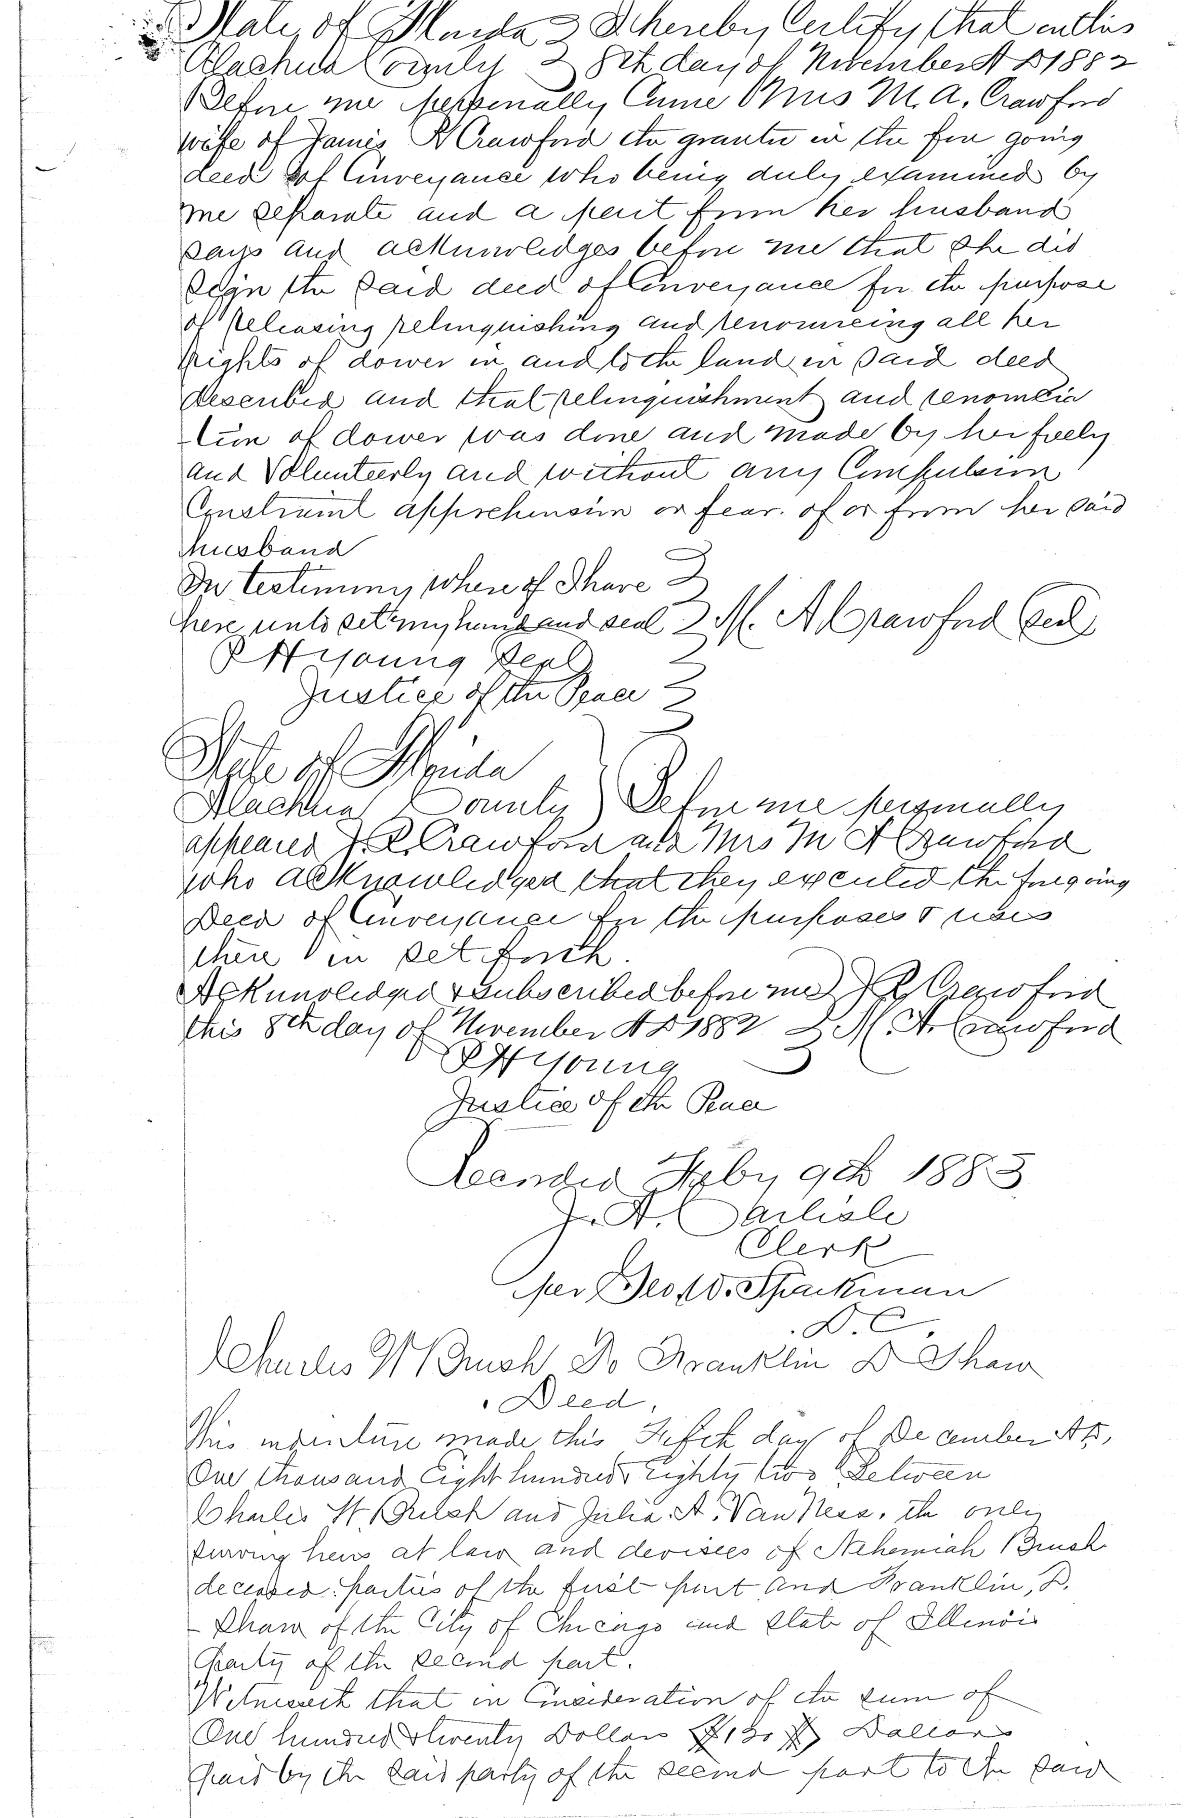 State of Florida } I hereby Certify that on this
Alachua County } 8th day of November A D 1882
Before me personally Came Mrs M. A. Crawford
wife of James R Crawford the grantor in the fore going
deed of Conveyance who being duly examined by
me separate and a part from her husband
says and acknowledges before me that she did
sign the said deed of Conveyance for the purpose
of releasing relinquishing and renouncing all her
rights of dower in and to the land in said deed
described and that relinquishment and renomcia
tion of dower was done and made by her freely
and Volunterly and without any Compulsion
Constraint apprehension or fear. of or from her said
husband
In testimony where of I have }
here unto set my hand and seal } M. A. Crawford Seal
P H Young Seal }
Justice of the Peace }
State of Florida
Alachua County } Before me personally
appeared J. R. Crawford and Mrs M A Crawford
who acknowledged that they executed the foregoing
Deed of Conveyance for the purposes & uses
there in set forth.
Acknowledged & Subscribed before me } J R Crawford
this 8th day of November A D 1882 } M. A. Crawford
P H Young }
Justice of the Peace
Recorded Feby 9th 1883
J. A. Carlisle
Clerk
per Geo. W. Sparkman
D. C.
Charles W Brush To Franklin D Shaw
Deed.
This indenture made this Fifth day of December A D,
One thousand Eight hundred & Eighty two Between
Charles W. Brush and Julia. A. Van Ness. the only
surving heirs at law and devisees of Nehemiah Brush
deceased. parties of the first part and Franklin, D.
Shaw of the City of Chicago and State of Illinois
Party of the second part.
Witnesseth that in Consideration of the sum of
One hundred & twenty Dollars Dollars
paid by the said party of the second part to the said